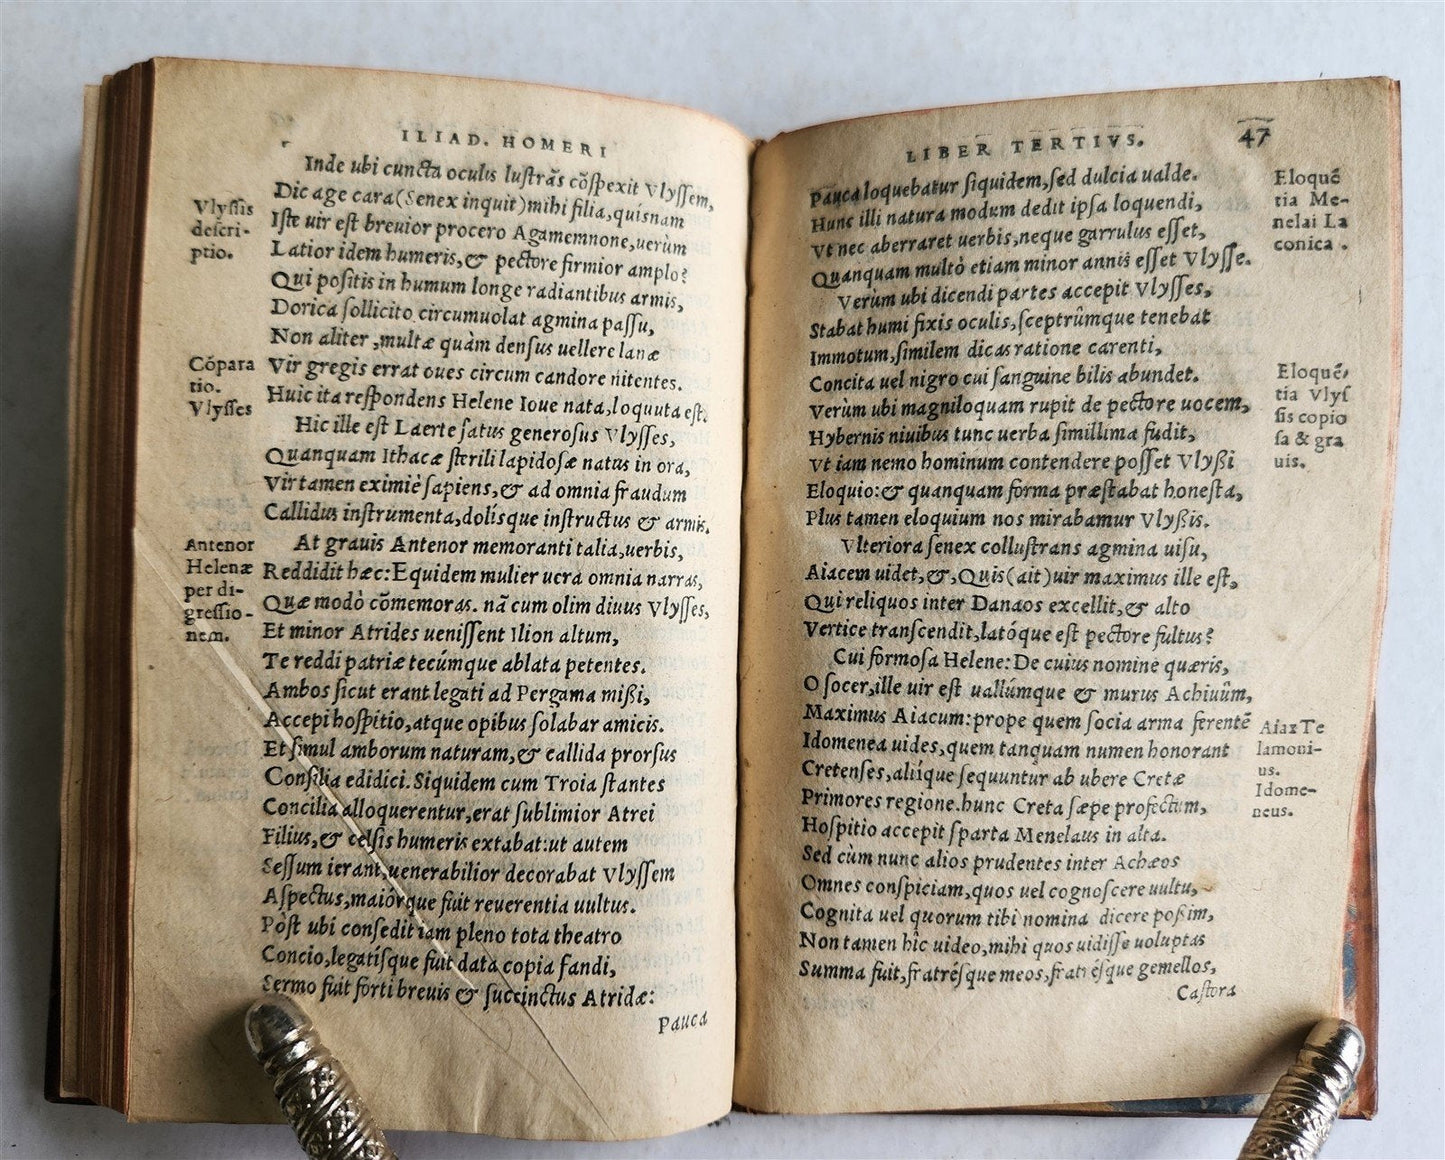 ILIAD. HOMERI
Inde ubi cuncta oculis luſtrãs cõſpexit Vlyſſem,
Dic age cara(Senex inquit)mihi filia,quiſnam
Iſte uir eſt breuior procero Agamemnone,uerùm
Latior idem humeris,& pectore firmior amplo?
Qui poſitis in humum longe radiantibus armis,
Dorica ſollicito circumuolat agmina paſſu,
Non aliter,multæ quàm denſus uellere lanæ
Vir gregis errat oues circum candore nitentes.
Huic ita reſpondens Helene Ioue nata,loquuta eſt.
Hic ille eſt Laerte ſatus generoſus Vlyſſes,
Quanquam Ithacæ ſterili lapidoſæ natus in ora,
Vir tamen eximiè ſapiens,& ad omnia fraudum
Callidus inſtrumenta,dolíſque inſtructus & armis.
At grauis Antenor memoranti talia,uerbis,
Reddidit hæc:Equidem mulier uera omnia narras,
Quæ modò cõmemoras. nã cum olim diuus Vlyſſes,
Et minor Atrides ueniſſent Ilion altum,
Te reddi patriæ tecúmque ablata petentes.
Ambos ſicut erant legati ad Pergama mißi,
Accepi hoſpitio,atque opibus ſolabar amicis.
Et ſimul amborum naturam,& callida prorſus
Conſilia edidici.Siquidem cum Troia ſtantes
Concilia alloquerentur,erat ſublimior Atrei
Filius,& celſis humeris extabat:ut autem
Seſſum ierant,uenerabilior decorabat Vlyſſem
Aſpectus,maiórque fuit reuerentia uultus.
Pòſt ubi conſedit iam pleno tota theatro
Concio,legatiſque fuit data copia fandi,
Sermo fuit forti breuis & ſuccinctus Atridæ:
Pauca
Vlyſſis
deſcri-
ptio.
Cópara
tio.
Vlyſſes
Antenor
Helenæ
per di-
greſſio-
nem.
LIBER TERTIVS.
47
Pauca loquebatur ſiquidem,ſed dulcia ualde.
Hunc illi natura modum dedit ipſa loquendi,
Vt nec aberraret uerbis,neque garrulus eſſet,
Quanquam multò etiam minor annis eſſet Vlyſſe.
Verùm ubi dicendi partes accepit Vlyſſes,
Stabat humi fixis oculis,ſceptrûmque tenebat
Immotum,ſimilem dicas ratione carenti,
Concita uel nigro cui ſanguine bilis abundet.
Verùm ubi magniloquam rupit de pectore uocem,
Hybernis niuibus tunc uerba ſimillima fudit,
Vt iam nemo hominum contendere poſſet Vlyßi
Eloquio:& quanquam forma præſtabat honeſta,
Plus tamen eloquium nos mirabamur Vlyßis.
Vlteriora ſenex colluſtrans agmina uiſu,
Aiacem uidet,&,Quis(ait)uir maximus ille eſt,
Qui reliquos inter Danaos excellit,& alto
Vertice tranſcendit,latóque eſt pectore fultus?
Cui formoſa Helene:De cuius nomine quæris,
O ſocer,ille uir eſt uallúmque & murus Achiuûm,
Maximus Aiacum:prope quem ſocia arma ferentẽ
Idomenea uides,quem tanquam numen honorant
Cretenſes,aliíque ſequuntur ab ubere Cretæ
Primores regione.hunc Creta ſæpe profectum,
Hoſpitio accepit ſparta Menelaus in alta.
Sed cùm nunc alios prudentes inter Achæos
Omnes conſpiciam,quos uel cognoſcere uultu,
Cognita uel quorum tibi nomina dicere poßim,
Non tamen hîc uideo,mihi quos uidiſſe uoluptas
Summa fuit,fratréſque meos,fratréſque gemellos,
Caſtora
Eloquẽ
tia Me-
nelai La
conica.
Eloquẽ
tia Vlyſ
ſis copio
ſa & gra
uis.
Aiax Te
lamoni-
us.
Idome-
neus.